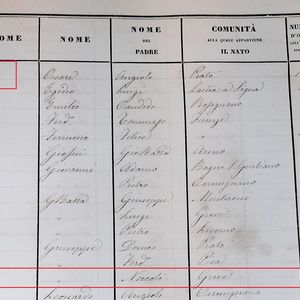 OME NOME NOME DEL PADRE COMUNITÀ ALLA QUALE APPARTIENE IL NATO NU D'O
Cesare Angiolo Prato
Egidio Luigi Lastra a Signa
Emilio Candido
Ferd° Tommaso Firenze
Ferruccio Felice "
Gio Batta Arezzo
Giovanni Adamo Bagni S. Giuliano
" Pietro Carmignano
G Batta Giuseppe
" Luigi Greve
" Pietro Livorno
Giuseppe Domco Prato
" Ferdo Pisa
" Niccola Greve
Leonardo Angiolo Carmignano